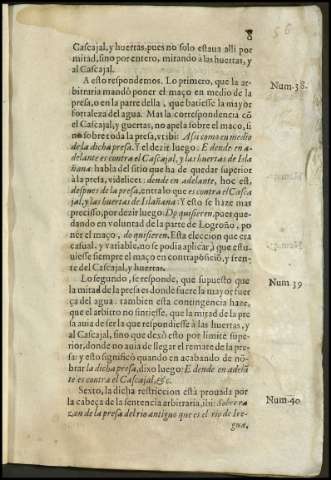 8
56
Cascajal, y huertas, pues no solo estaua alli por
mitad, sino por entero, mirando à las huertas, y
al Cascajal.
A esto respondemos. Lo primero, que la ar-
bitraria mandò poner el maço en medio de la
presa, o en la parte della, que batiesse la mayor
fortaleza del agua. Mas la correspondencia cõ
el Cascajal, y guertas, no apela sobre el maço, si
no sobre toda la presa, vt ibi: Assi como en medio
de la dicha presa. Y el dezir luego: E dende en a-
delante es contra el Cascajal, y las huertas de Isla
ñana: habla del sitio que ha de quedar superior
à la presa, videlicet: dende en adelante, hoc est,
despues de la presa, entra lo que es contra el Casca
jal, y las huertas de Islañana: Y esto se haze mas
precisso, por dezir luego: Do quisieren, pues que-
dando en voluntad de la parte de Logroño, po
ner el maço, do quisieren. Esta eleccion que era
casual, y variable, no se podia aplicar, à que estu-
uiesse siempre el maço en contraposiciõ, y fren-
te del Cascajal, y huertas.
Lo segundo, se responde, que supuesto que
la mitad de la presa es donde fuere la mayor fuer
ça del agua, tambien esta contingencia haze,
que el arbitro no sintiesse, que la mitad de la pre
sa auia de ser la que respondiesse à las huertas, y
al Cascajal, sino que dexò esto por limite supe-
rior, donde no auia de llegar el remate de la pre-
sa: y esto significó quando en acabando de nõ-
brar la dicha presa, dixo luego: E dende en adelã
te es contra el Cascajal, &c.
Sexto, la dicha restriccion està prouada por
la cabeça de la sentencia arbitraria, ibi: Sobre ra
zon de la presa del rio antiguo que es el rio de Ire-
gua,
Num. 38.
Num. 39
Num. 40.